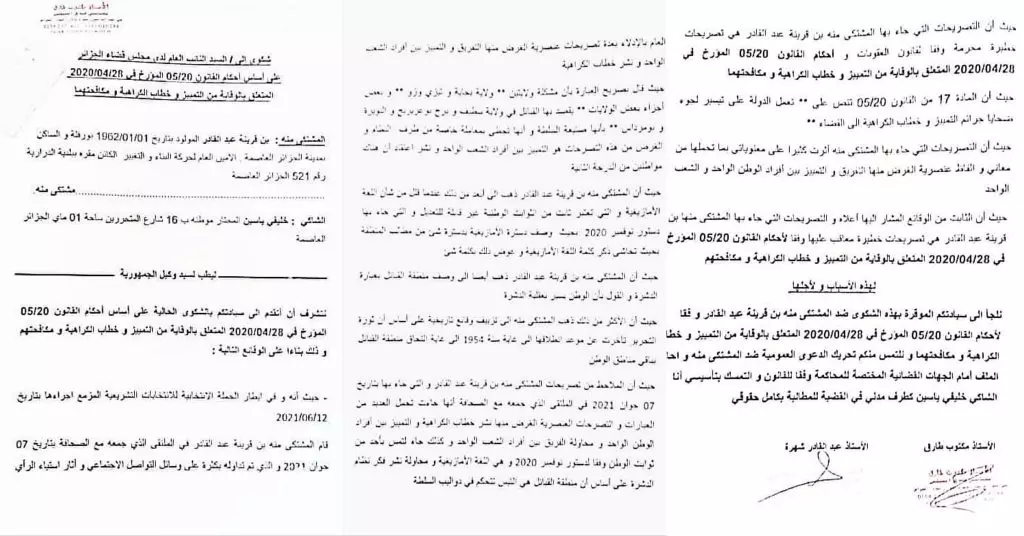 الأستاذ مكتوب طارق
شكوى إلى / السيد النائب العام لدى مجلس قضاء الجزائر
على أساس أحكام القانون 05/20 المؤرخ في 2020/04/28
المتعلق بالوقاية من التمييز و خطاب الكراهية و مكافحتهما
المشتكى منه : بن قرينة عبد القادر المولود بتاريخ 1962/01/01 بورقلة و الساكن
بمدينة الجزائر العاصمة . الامين العام لحركة البناء و التغيير الكائن مقره ببلدية الدرارية
رقم 521 الجزائر العاصمة
مشتكى منه.
الشاكي : خليفي ياسين المختار موطنه ب 16 شارع المتحررين ساحة 01 ماي الجزائر
العاصمة
ليطب لسيد وكيل الجمهورية
نتشرف أن أتقدم الى سيادتكم بالشكوى الحالية على أساس أحكام القانون 05/20
المؤرخ في 2020/04/28 المتعلق بالوقاية من التمييز و خطاب الكراهية و مكافحتهم
و ذلك بناءا على الوقائع التالية :
- حيث أنه و في ايطار الحملة الانتخابية للانتخابات التشريعية المزمع اجراءها بتاريخ
2021/06/12
قام المشتكى منه بن قرينة عبد القادر في الملتقى الذي جمعه مع الصحافة بتاريخ 07
جوان 2021 و الذي تم تداوله بكثرة على وسائل التواصل الاجتماعي و أثار استياء الرأي
العام بالإدلاء بعدة تصريحات عنصرية الغرض منها التفريق و التمييز بين أفراد الشعب
الواحد و نشر خطاب الكراهية
حيث قال بصريح العبارة بأن مشكلة ولايتين ** ولاية بجاية و تيزي وزو ** و بعض
أجزاء بعض الولايات ** يقصد بها القبائل في ولاية سطيف و برج بوعريريج و البويرة
و بومرداس ** بأنها صنيعة السلطة و أنها تحظى بمعاملة خاصة من طرف القضاء و
الغرض من هذه التصريحات هو التمييز بين أفراد الشعب الواحد و نشر اعتقاد أن هناك
مواطنين من الدرجة الثانية
حيث أن المشتكى منه بن قرينة عبد القادر ذهب الى أبعد من ذلك عندما قلل من شأن اللغة
الأمازيغية و التي تعتبر ثابت من الثوابت الوطنية غير قابلة للتعديل و التي جاء بها
دستور نوفمبر 2020 بحيث وصف دسترة الأمازيغية بدسترة شئ من مطالب المنطقة
بحيث تحاشى ذكر كلمة اللغة الأمازيغية و عوض ذلك بكلمة شئ
حيث أن المشتكى منه بن قرينة عبد القادر ذهب أيضا الى وصف منطقة القبائل بعبارة
الدشرة و القول بأن الوطن يسير بعقلية الدشرة
حيث أن الأكثر من ذلك ذهب المشتكى منه الى تزييف وقائع تاريخية على أساس أن ثورة
التحرير تأخرت عن موعد انطلاقها الى غاية سنة 1954 الى غاية التحاق منطقة القبائل
بباقي مناطق الوطن
حيث أن الملاحظ من تصريحات المشتكى منه بن قرينة عبد القادر و التي جاء بها بتاريخ
07 جوان 2021 في الملتقى الذي جمعه مع الصحافة أنها جاءت تحمل العديد من
العبارات و التصرحات العنصرية الغرض منها نشر خطاب الكراهية و التمييز بين أفراد
الوطن الواحد و محاولة الفريق بين أفراد الشعب الواحد و كذلك جاء لتمس بأحد من
ثوابت الوطن وفقا لدستور نوفمبر 2020 و هي اللغة الأمازيغية و محاولة نشر فكر نظام
الدشرة على أساس أن منطقة القبائل هي التيس تتحكم في دواليب السلطة
حيث أن التصريحات التي جاء بها المشتكى منه بن قرينة عبد القادر هي تصريحات
خطيرة مجرمة وفقا لقانون العقوبات و أحكام القانون 05/20 المؤرخ في
2020/04/28 المتعلق بالوقاية من التمييز و خطاب الكراهية و مكافحتهما
حيث أن المادة 17 من القانون 05/20 تنص على ** تعمل الدولة على تيسير لجوء
ضحايا جرائم التمييز و خطاب الكراهية الى القضاء **
حيث أن التصريحات التي جاء بها المشتكى منه أثرت كثيرا على معنوياتي بما تحملها من
معاني و ألفاظ عنصرية الغرض منها التفريق و التمييز بين أفراد الوطن الواحد و الشعب
الواحد
حيث أن الثابت من الوقائع المشار اليها أعلاه و التصريحات التي جاء بها المشتكى منها بن
قرينة عبد القادر هي تصريحات خطيرة معاقب عليها وفقا لأحكام القانون 05/20 المؤرخ
في 2020/04/28 المتعلق بالوقاية من التمييز و خطاب الكراهية و مكافحتهم
لهذه الأسباب و لأجلها
نلجأ الى سيادتكم الموقرة بهذه الشكوى ضد المشتكى منه بن قرينة عبد القادر و فقا
لأحكام القانون 05/20 المؤرخ في 2020/04/28 المتعلق بالوقاية من التمييز و خطا
الكراهية و مكافحتهما و نلتمس منكم تحريك الدعوى العمومية ضد المشتكى منه و احا
الملف أمام الجهات القضائية المختصة للمحاكمة وفقا للقانون و التمسك بتأسيسي أنا
الشاكي خليفي ياسين كطرف مدني في القضية للمطالبة بكامل حقوقي
الأستاذ مكتوب طارق
الأستاذ عبد القادر شهرة
الأستاذ مكتوب طارق